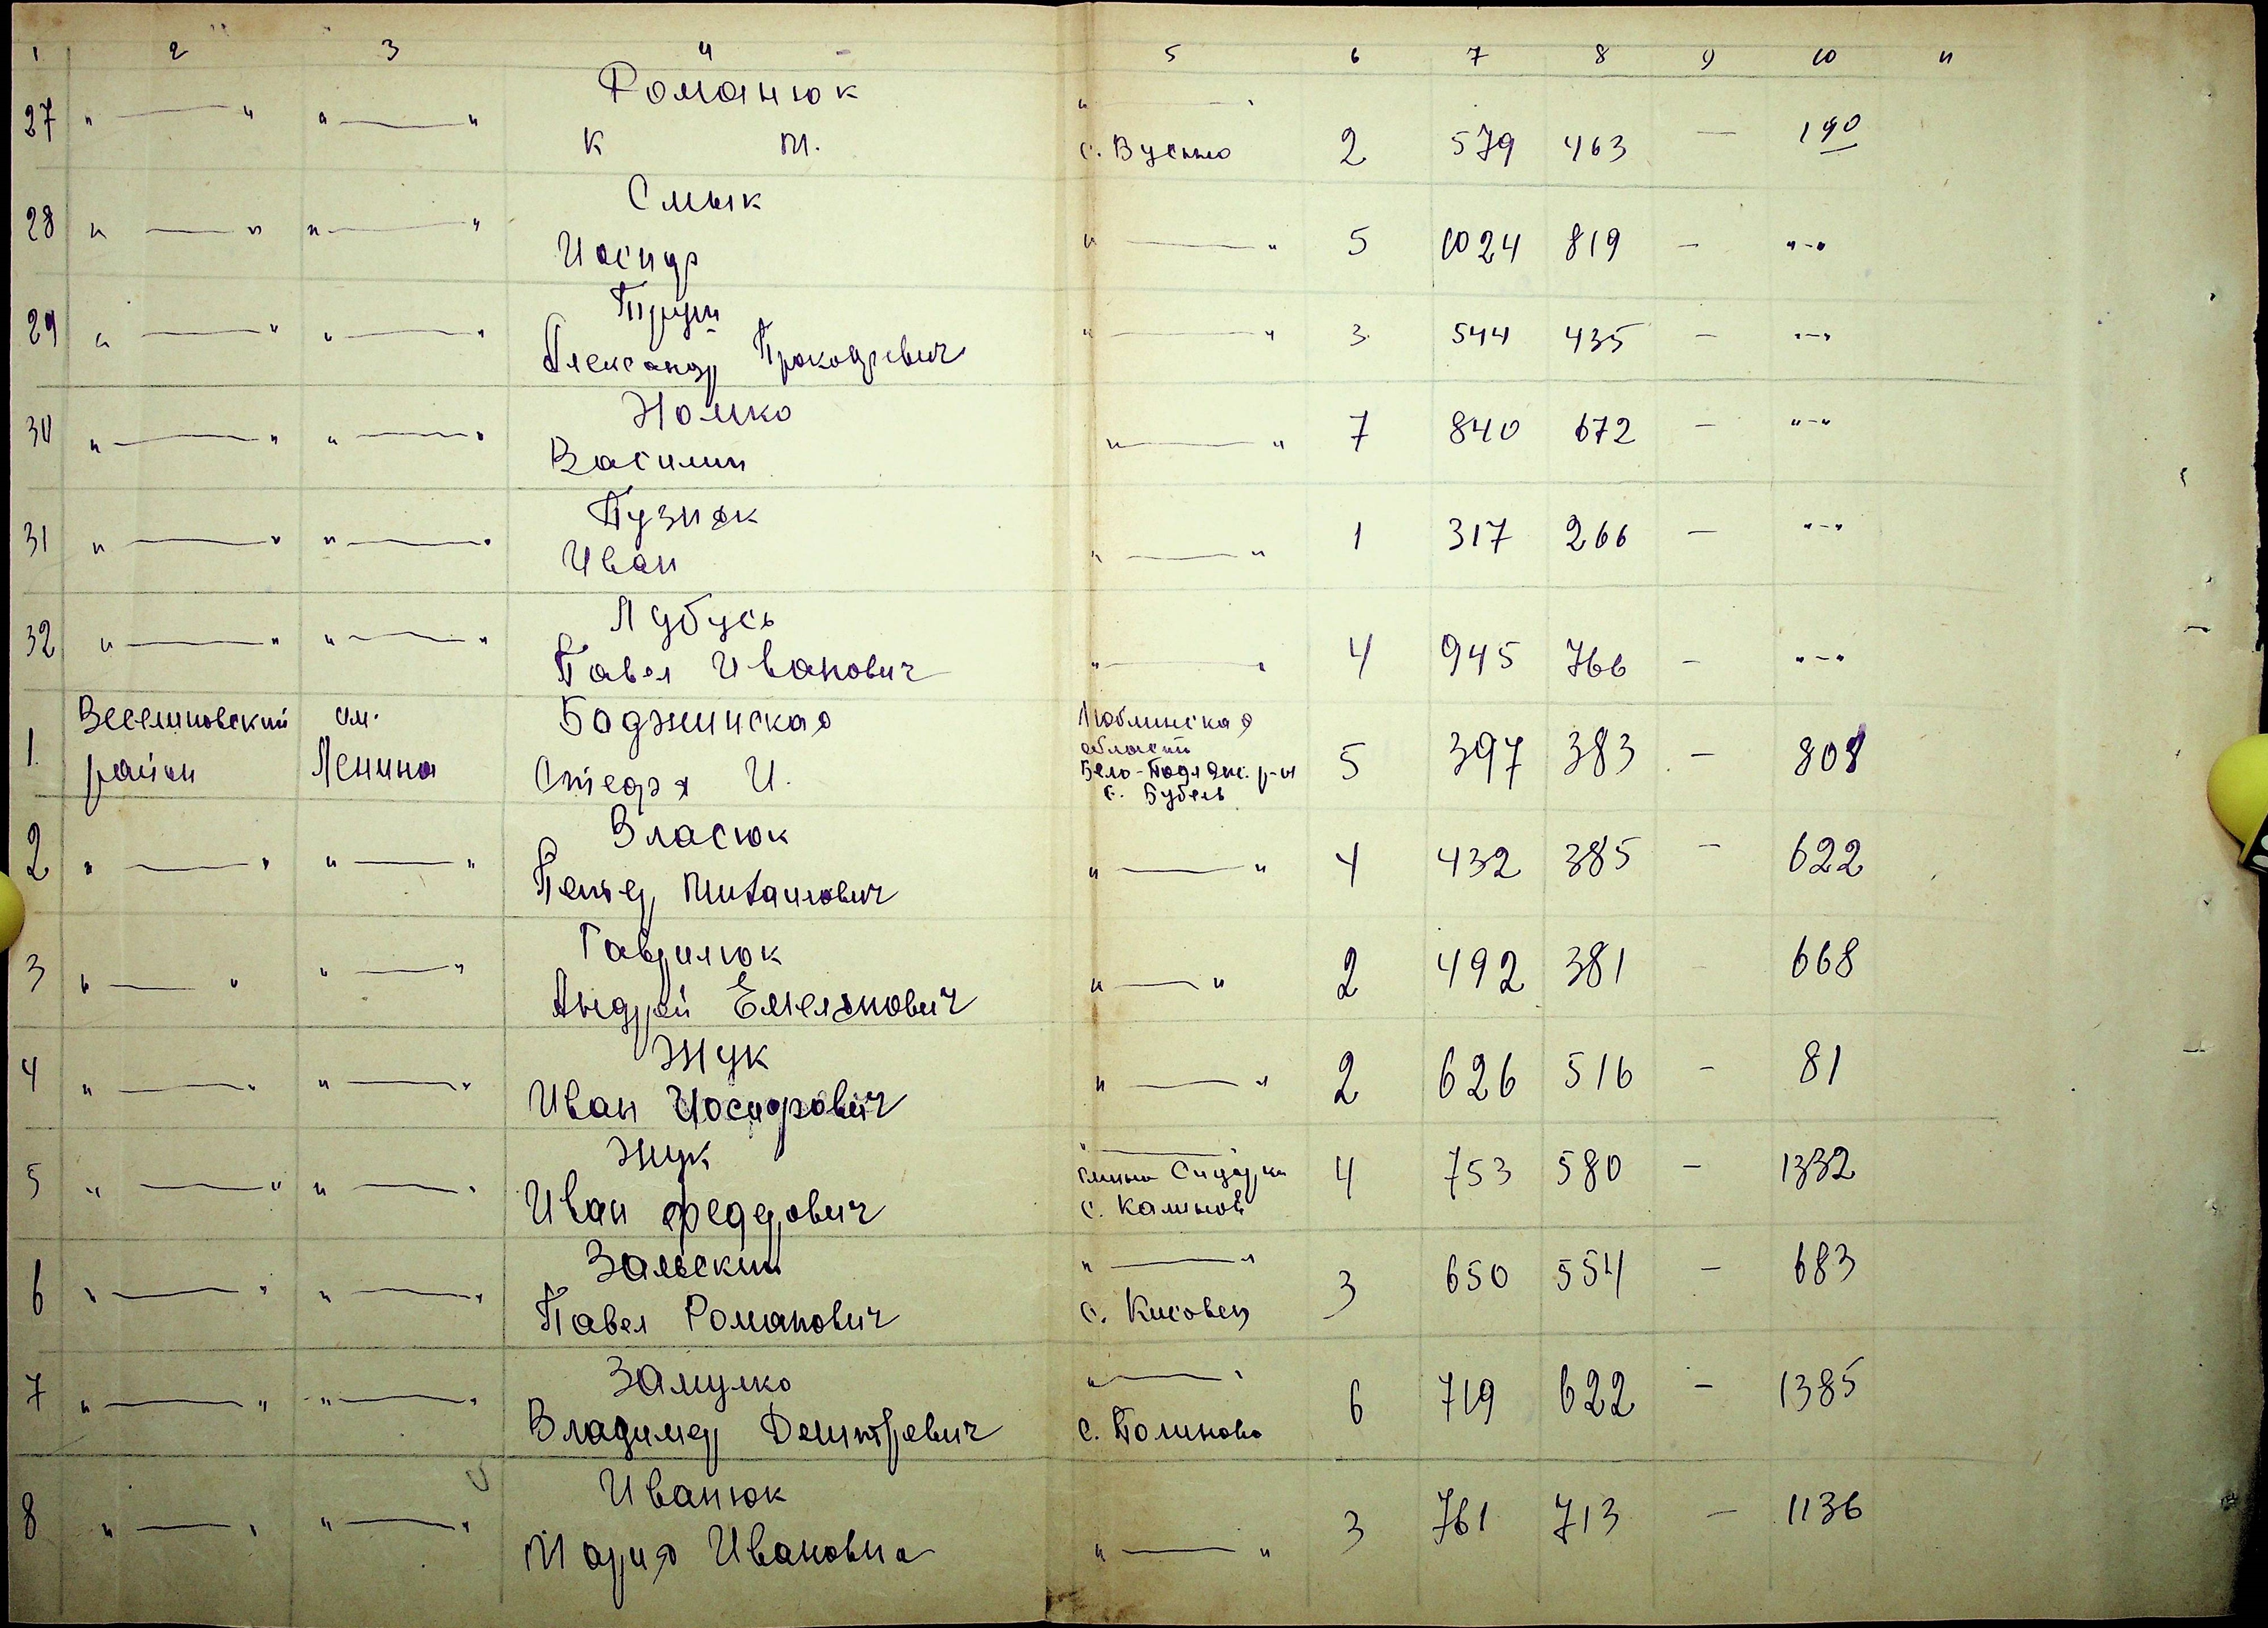 1 2 3 4 5 6 7 8 9 10 11
Романюк
27 " — " " — " " — "
К М. с. Вусньо 2 579 463 — 190
Смык
28 " — " " — " " — " 5 1024 819 — "-"
Иосиф
29 " — " " — " " — " 3 544 435 — "-"
Александр Прокофьевич
Номко
30 " — " " — " " — " 7 840 672 — "-"
Василий
Пузняк
31 " — " " — " " — " 1 317 266 — "-"
Иван
Лубусь
32 " — " " — " " — " 4 945 766 — "-"
Павел Иванович
Веселиновский им. Боджинская Люблинская
область
1 район Ленина Стефа И. Бело-Подлянс. р-н 5 397 383 — 808
с. Бубель
Власюк
2 " — " " — " " — " 4 432 385 — 622
Петер Михайлович
Гаврилюк
3 " — " " — " " — " 2 492 381 — 668
Андрей Емелянович
Жук
4 " — " " — " " — " 2 626 516 — 81
Иван Иосифович
Жук " — "
5 " — " " — " гмина Сидорки 4 753 580 — 1332
Иван Федорович с. Калинов
Зальский " — "
6 " — " " — " 3 650 554 — 683
Павел Романович с. Кисовец
Замулко " — "
7 " — " " — " 6 719 622 — 1385
Владимер Дмитревич с. Полиново
Иванюк
8 " — " " — " " — " 3 761 713 — 1136
Мария Ивановна